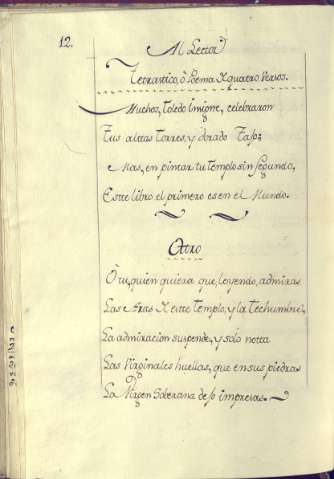 12.
Al Lector
Tetrastico, ò Poema de quatro Versos.
Muchos, Toledo Insigne, celebraron
Tus altas Torres, y dorado Tajo;
Mas, en pintar tu templo sin segundo,
Este libro el primero es en el Mundo.
Otro
O tu, quien quiera que, leyendo, admiras
Las de este Templo, y la techumbre,
La admiracion suspende, y solo nota
Las Virginales huellas, que en sus piedras
La Virgen Soberana dejó impresas.